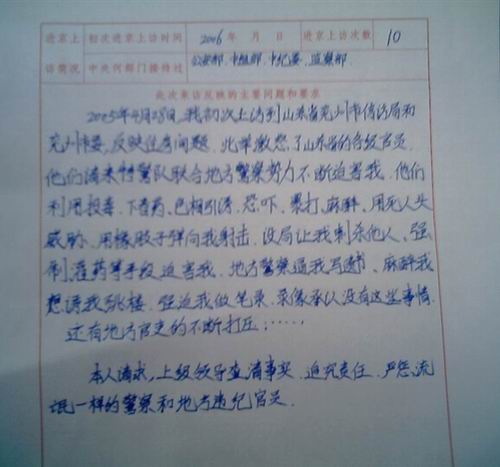 进京上 初次进京上访时间 2006年 月 日 进京上访次数 10
访情况 中央何部门接待过 公安部、中组部、中纪委、监察部.
此次来访反映的主要问题和要求
2005年4月28日,我初次上访到山东省兖州市信访局和
兖州市委,反映住房问题.此举激怒了山东省的各级官员
他们请来特警队联合地方警察势力不断迫害我.他们
利用投毒、下春药、色相引诱、恐吓、暴打、麻醉、用死人头
威胁、用橡胶子弹向我射击、设局让我刺杀他人、强
制灌药等手段迫害我.地方警察逼我写遗书、麻醉我
想诱我跳楼.强迫我做笔录、录像承认没有这些事情.
还有地方官吏的不断打压;……
本人请求,上级领导查清事实、追究责任、严惩流
氓一样的警察和地方违纪官员.